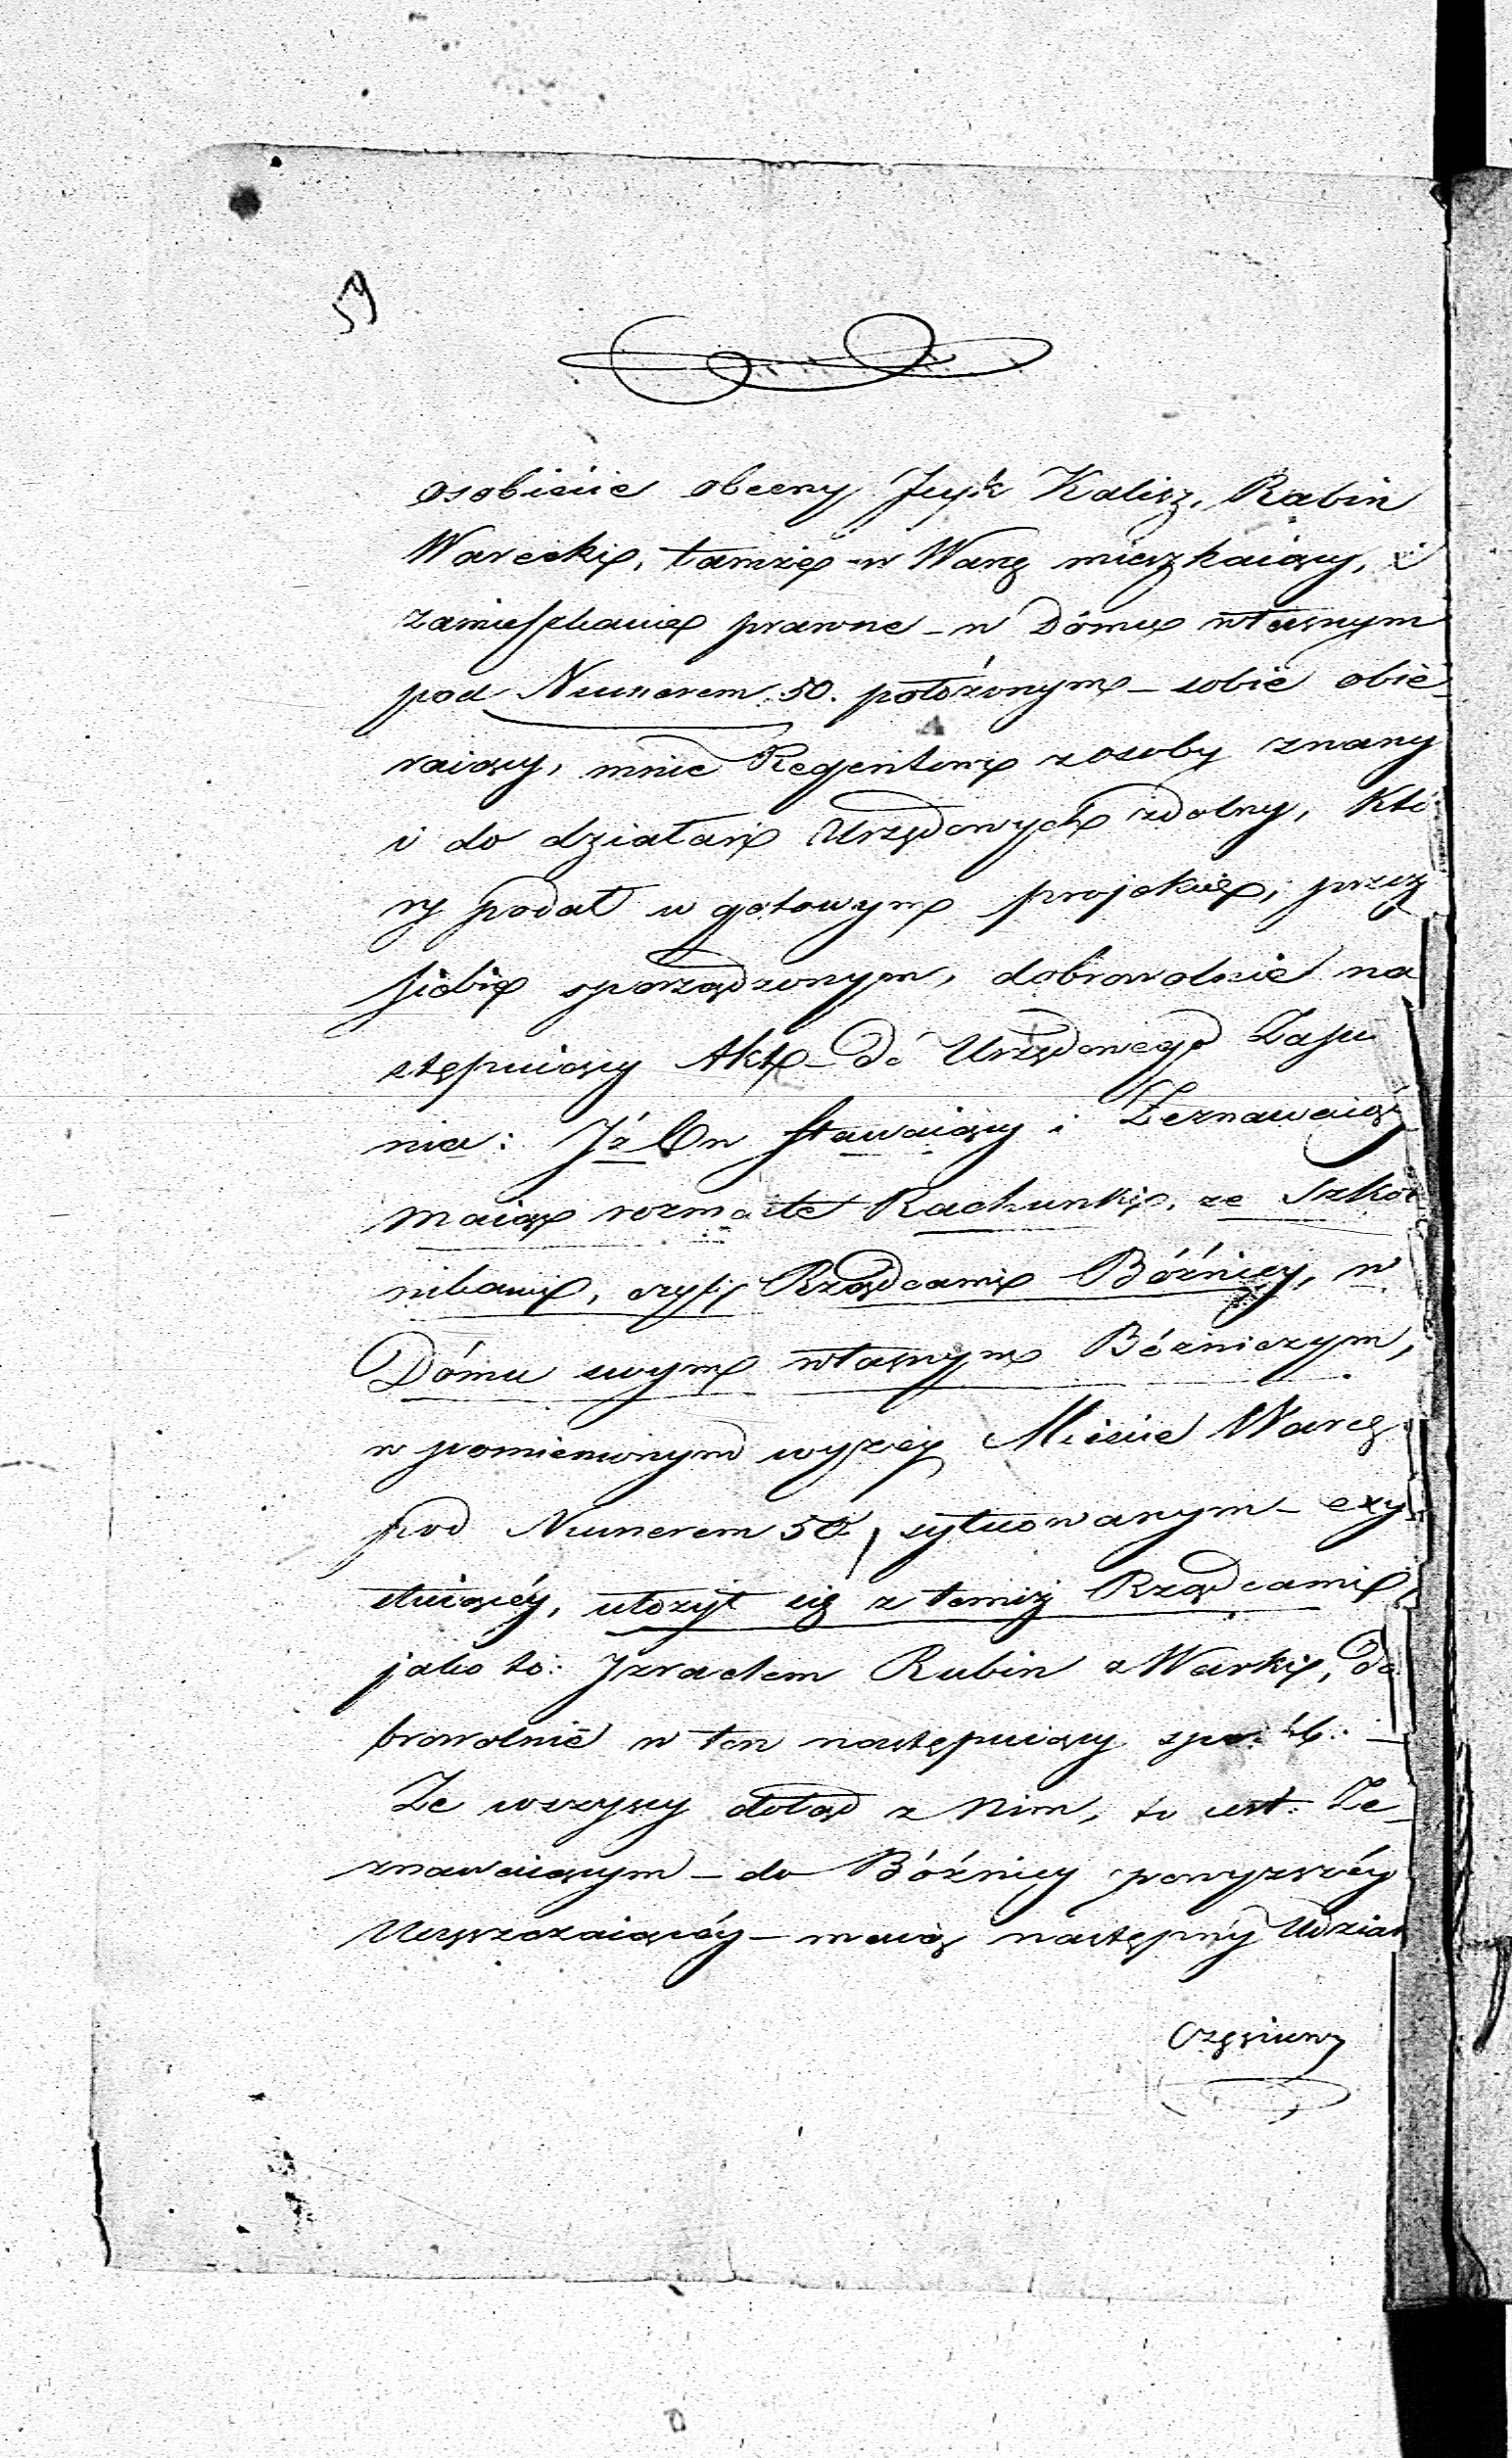 59
osobiście obecny Jcyk Kalisz, Rabin
Warecki, tamże w Warce mieszkaiący, i
zamieszkanie prawne – w Dómu własnym
pod Numerem 50. położonym – sobie obie-
raiący, mnie Regentowi z osoby znany
i do działań Urzędowych zdolny, Któ
ry podał w gotowym projekcie, przez
siebie sporządzonym, dobrowolnie na
stępuiący Akt – do Urzędowego
nia: Jż On Stawaiący i Zeznawaiący
maiąc rozmaite Rachunki, ze Szkól
nikami, czyli Rządcami Bóżnicy, w
Dómu swym własnym Bóżniczym,
w pomienionym wyżey Mieście Warce
pod Numerem 50, sytuowanym – exy
stuiącéy, ułożył się z temiż Rządcami
jako to: Jzraelem Rubin z Warki, do
browolnie w ten następuiący sposób: –
Że wszyscy dotąd z Nim, to iest: Ze-
znawaiącym – do Bóżnicy powyższéy
Uczęszczaiącéy – maią następny Udział